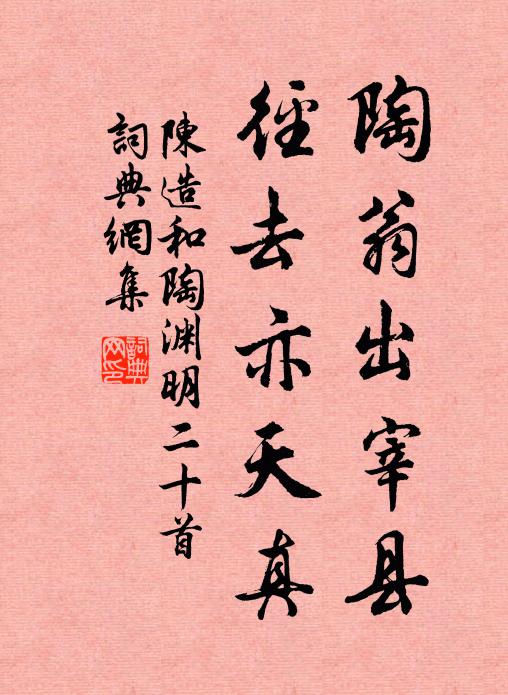 陶翁出宰县
径去亦天真
陳造和陶渊明二十首
詞典網集
詞典
网印